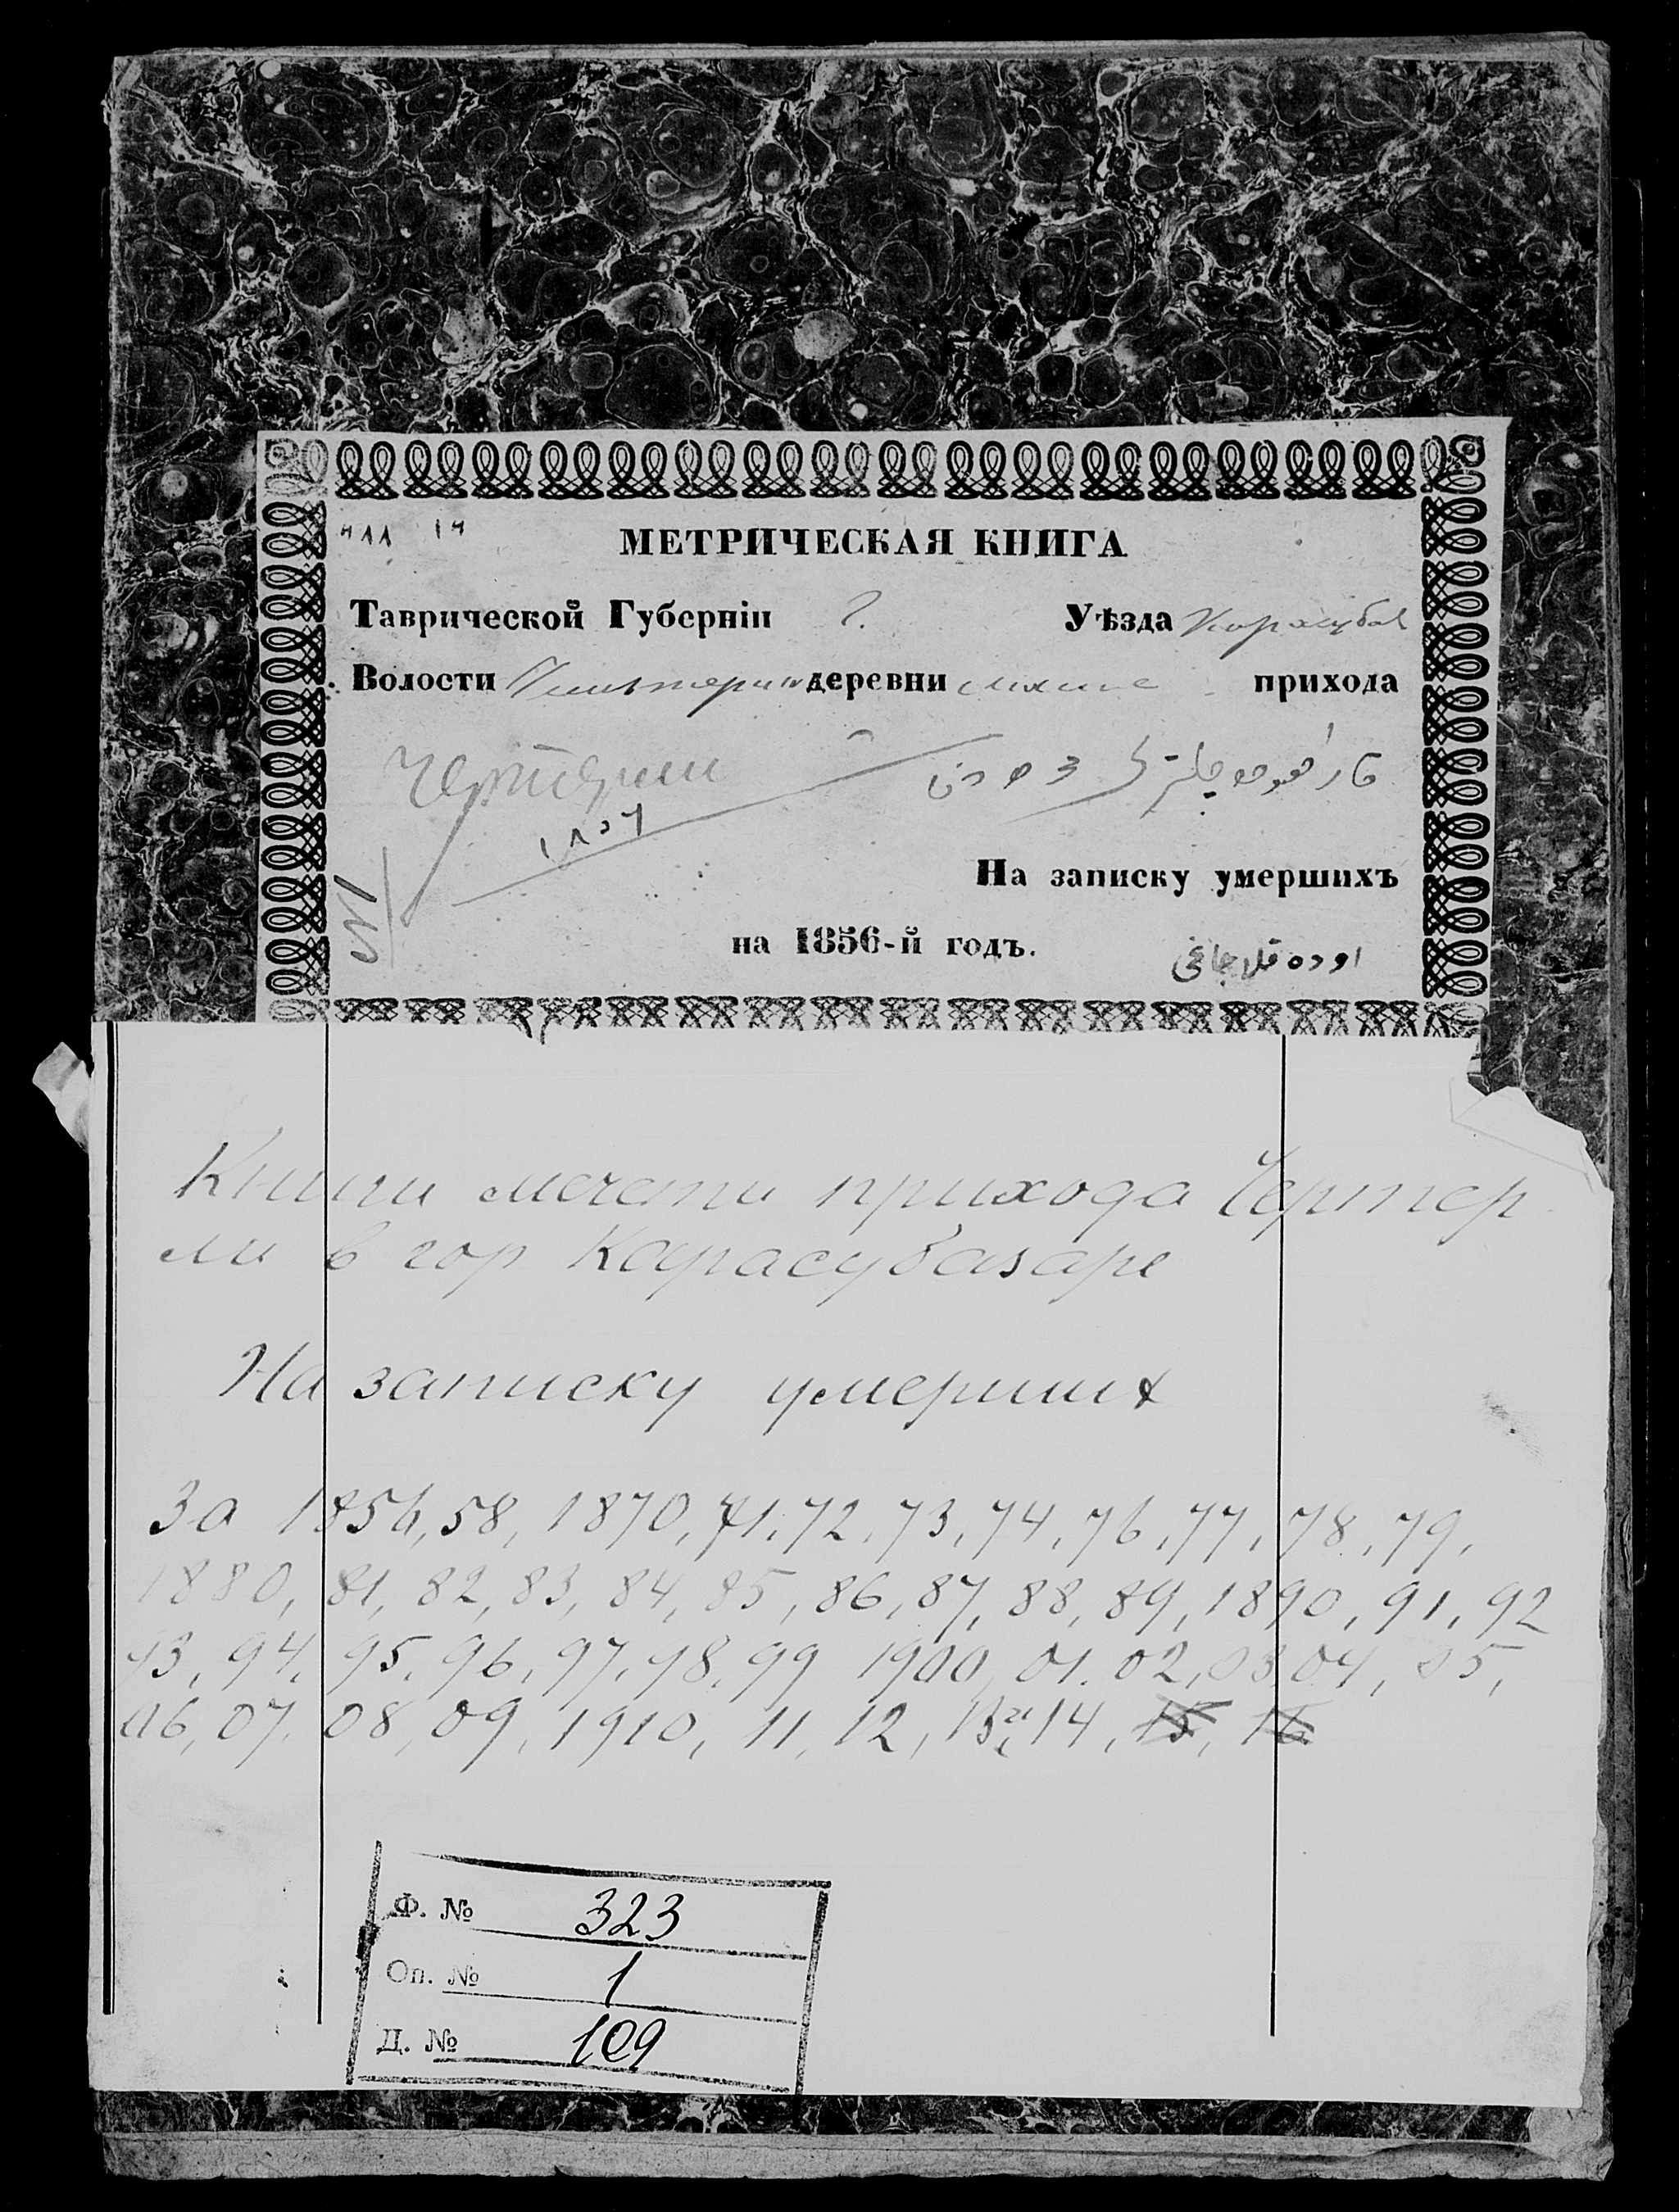 МЕТРИЧЕСКАЯ КНИГА
Таврической Губерніи г. Уѣзда Карасубаз
Волости деревни прихода
١٨٥٦
На записку умершихъ
на 1856-й годъ.
Книги мечети прихода Чертер-
ли в гор Карасубазаре
На записку умерших
За 1856, 58, 1870, 71, 72, 73, 74, 76, 77, 78, 79,
1880, 81, 82, 83, 84, 85, 86, 87, 88, 89, 1890, 91, 92
93, 94, 95, 96, 97, 98, 99 1900, 01, 02, 03, 04, 05,
06, 07, 08, 09, 1910, 11, 12, 13, 14, 15, 16
Ф. № 323
Оп. № 1
Д. № 109